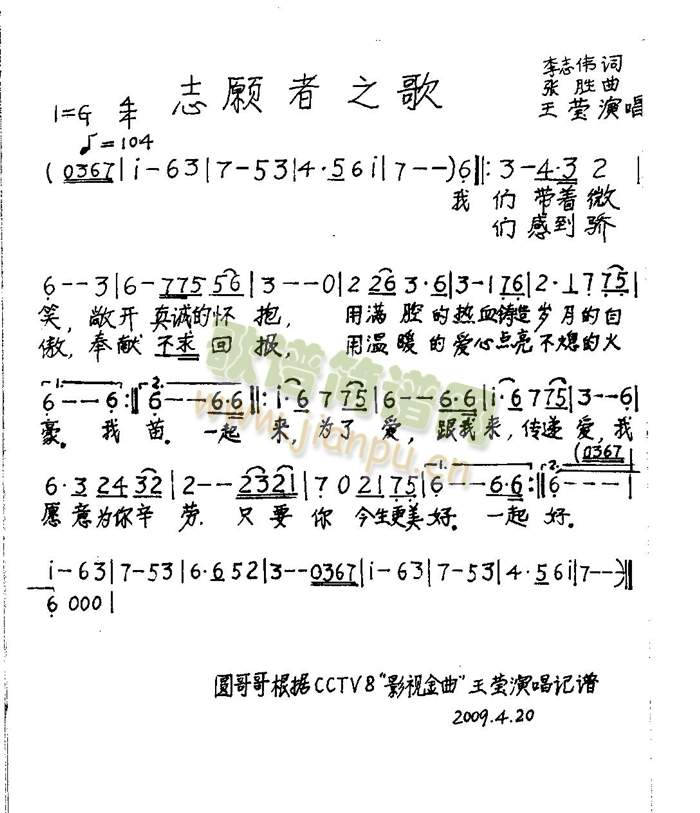 志愿者之歌
李志伟词
张胜曲
王莹演唱
1=G 4/4
♩=104
(0367|i-63|7-53|4·56i|7--)6‖:3-4·32|
我们带着微
们感到骄
6--3|6-77556|3--0|2263·6|3-176|2·1775|
笑，敞开真诚的怀抱，用满腔的热血铸造岁月的自
傲，奉献不求回报，用温暖的爱心点亮不熄的火
1. 2.
6---6:‖6--6·6‖:i·6775|6--6·6|i·6775|3--6|
豪。我苗。一起来，为了爱，跟我来，传递爱，我
(0367|
1. 2.
6·32432|2--2321|702175|6--6·6:‖6---|
愿意为你辛劳.只要你今生更美好。一起好。
i-63|7-53|6·652|3--0367|i-63|7-53|4·56i|7--)‖
6000|
歌谱简谱网
www.jianpu.cn
圆哥哥根据CCTV8"影视金曲"王莹演唱记谱
2009.4.20